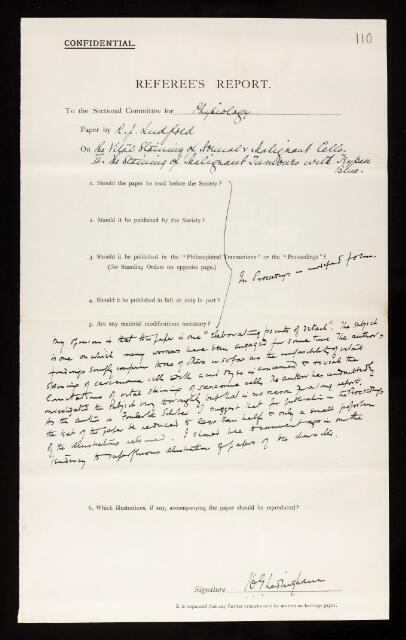 110
CONFIDENTIAL.
REFEREE'S REPORT.
To the Sectional Committee for Physiology
Paper by R. J. Ludford
On The Vital Staining of Normal & Malignant Cells.
II. The Staining of Malignant Tumours with Trypan
Blue.
1. Should the paper be read before the Society?
2. Should it be published by the Society?
3. Should it be published in the "Philosophical Transactions" or the "Proceedings"?
(See Standing Orders on opposite page.)
In Proceedings in modified form.
4. Should it be published in full or only in part?
5. Are any material modifications necessary?
My opinion is that this paper is one "elaborating points of detail". The subject
is one on which many workers have been engaged for some time. The author's
findings simply confirm those of others in so far as the impossibility of vital
staining of carcinoma cells with acid dyes is concerned & reveal the
limitations of vital staining of sarcoma cells. The author has undoubtedly
investigated the subject very thoroughly but that is no reason for a long report.
As the author is Foulerton Scholar I suggest that for publication in the Proceedings
the text of the paper be reduced to less than half & only a small proportion
of the illustrations retained. I should like to comment again on the
tendency to superfluous illustration of papers of this character.
6. Which illustrations, if any, accompanying the paper should be reproduced?
Signature
It is requested that any further remarks may be written on foolscap paper.